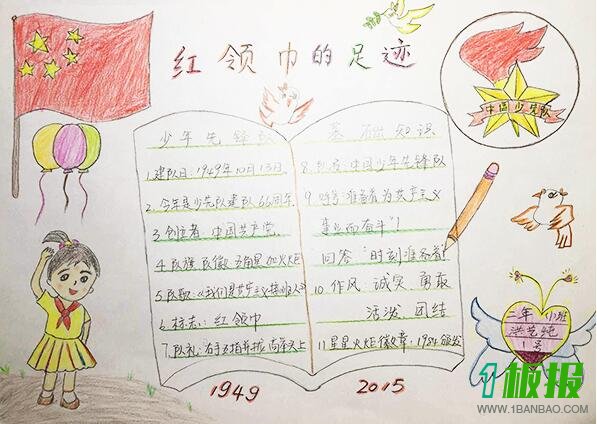 红领巾的足迹
中国少先队
少年先锋队
基础知识
1.建队日:1949年10月13日
2.今年是少先队建队66周年
3.创立者:中国共产党
4.队旗 队徽 五角星加火炬
5.队歌:《我们是共产主义接班人》
6.标志:红领巾
7.队礼:右手五指并拢,高举头上
8.队名:中国少年先锋队
9.呼号:准备着为共产主义
事业而奋斗"!
回答"时刻准备着!
10.作风:诚实 勇敢
活泼 团结
11.星星火炬徽章:1984颁发
1949
2015
二年(1)班
1号
1板报
WWW.1BANBAO.COM